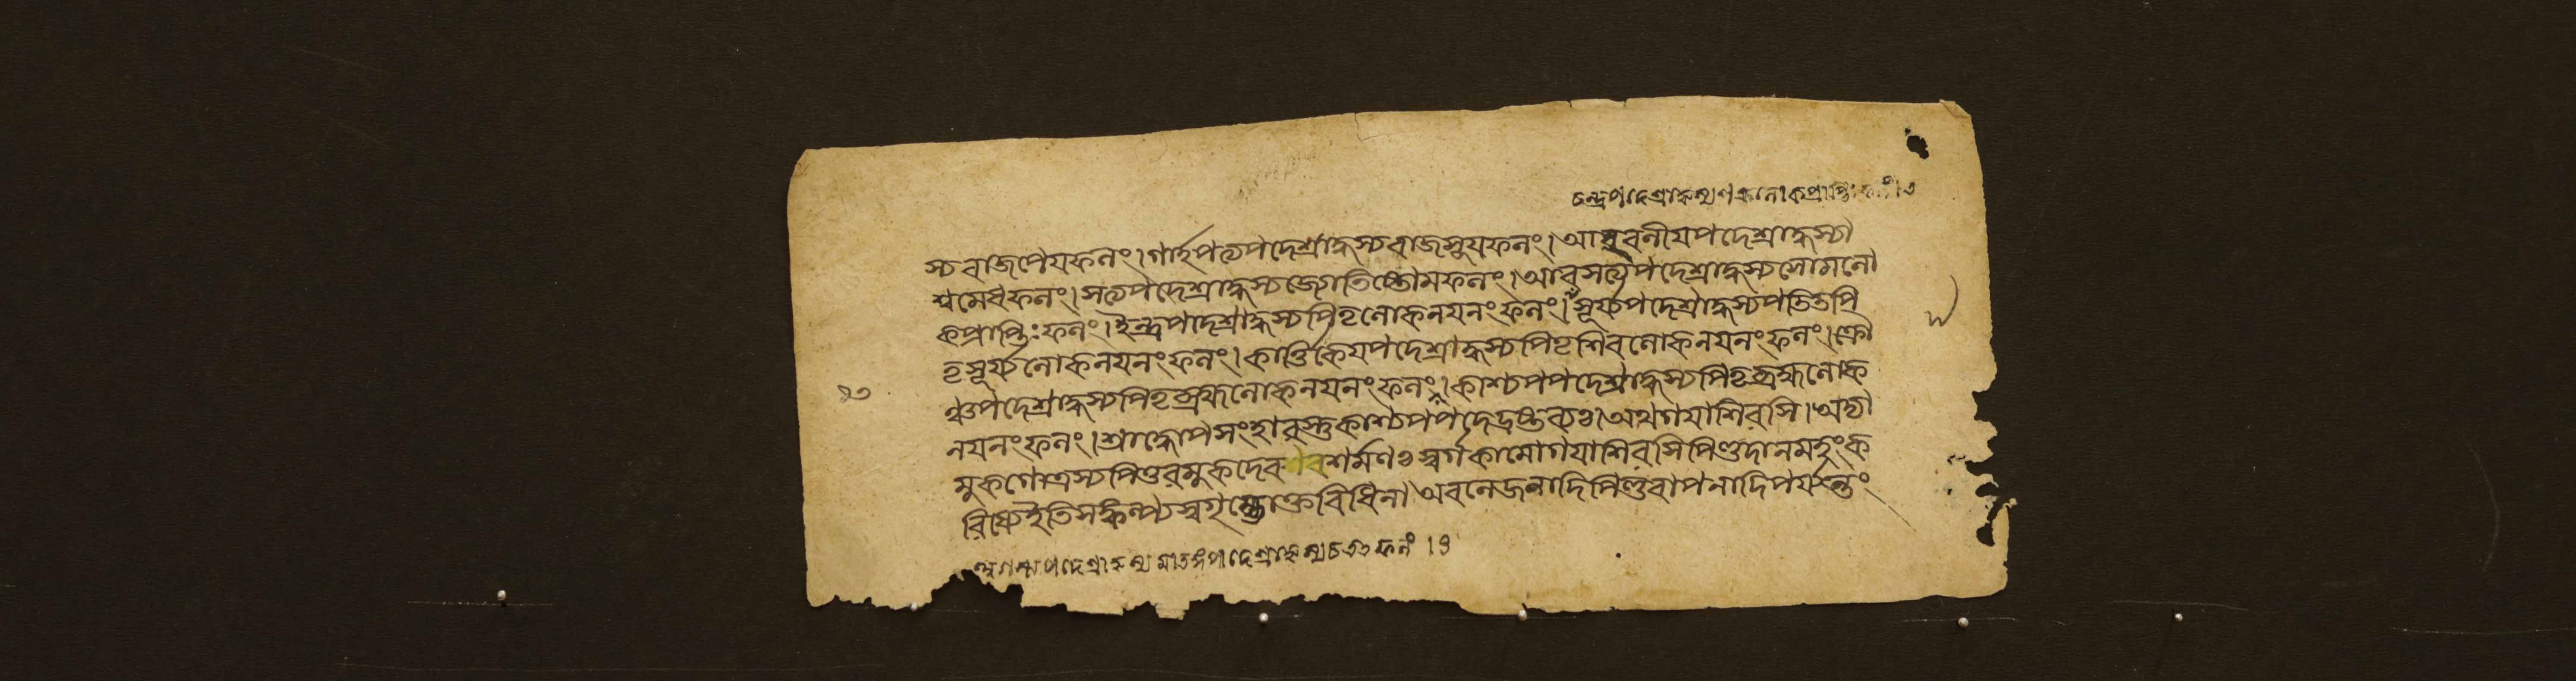 চন্দ্রপদেশ্রাদ্ধস্য
স্য বাজপেয়ফলং।গার্হপত্যপদেশ্রাদ্ধস্যরাজসূয়ফলং।আহবনীয়পদেশ্রাদ্ধস্যা
শ্বমেধফলং।সত্যপদেশ্রাদ্ধস্যজ্যোতিষ্টোমফলং।আবসথ্যপদেশ্রাদ্ধস্যসোমলো
কপ্রাপ্তিঃফলং।ইন্দ্রপদেশ্রাদ্ধস্যপিতৃলোকনয়নংফলং।সূর্য্যপদেশ্রাদ্ধস্যপতিতপি
তৃসূর্য্যলোকনয়নংফলং।কার্ত্তিকেয়পদেশ্রাদ্ধস্যপিতৃশিবলোকনয়নংফলং।ক্রৌ
ঞ্চপদেশ্রাদ্ধস্যপিতৃব্রহ্মলোকনয়নংফলং।কাশ্যপপদেশ্রাদ্ধস্যপিতৃব্রহ্মলোক
নয়নংফলং।শ্রাদ্ধোপসংহারস্তুকাশ্যপপদেদ্রষ্টব্যঃ।অথগয়াশিরসি।অদ্যা
মুকগোত্রস্যপিতুরমুকদেবশর্মণঃস্বর্গকামোগয়াশিরসিপিণ্ডদানমহংক
রিষ্যেইতিসঙ্কল্প্যস্বগৃহ্যোক্তবিধিনা অবনেজনাদিপিণ্ডবাপনাদিপর্য্যন্তং
পদেশ্রাদ্ধস্য মাতঙ্গপদেশ্রাদ্ধস্য